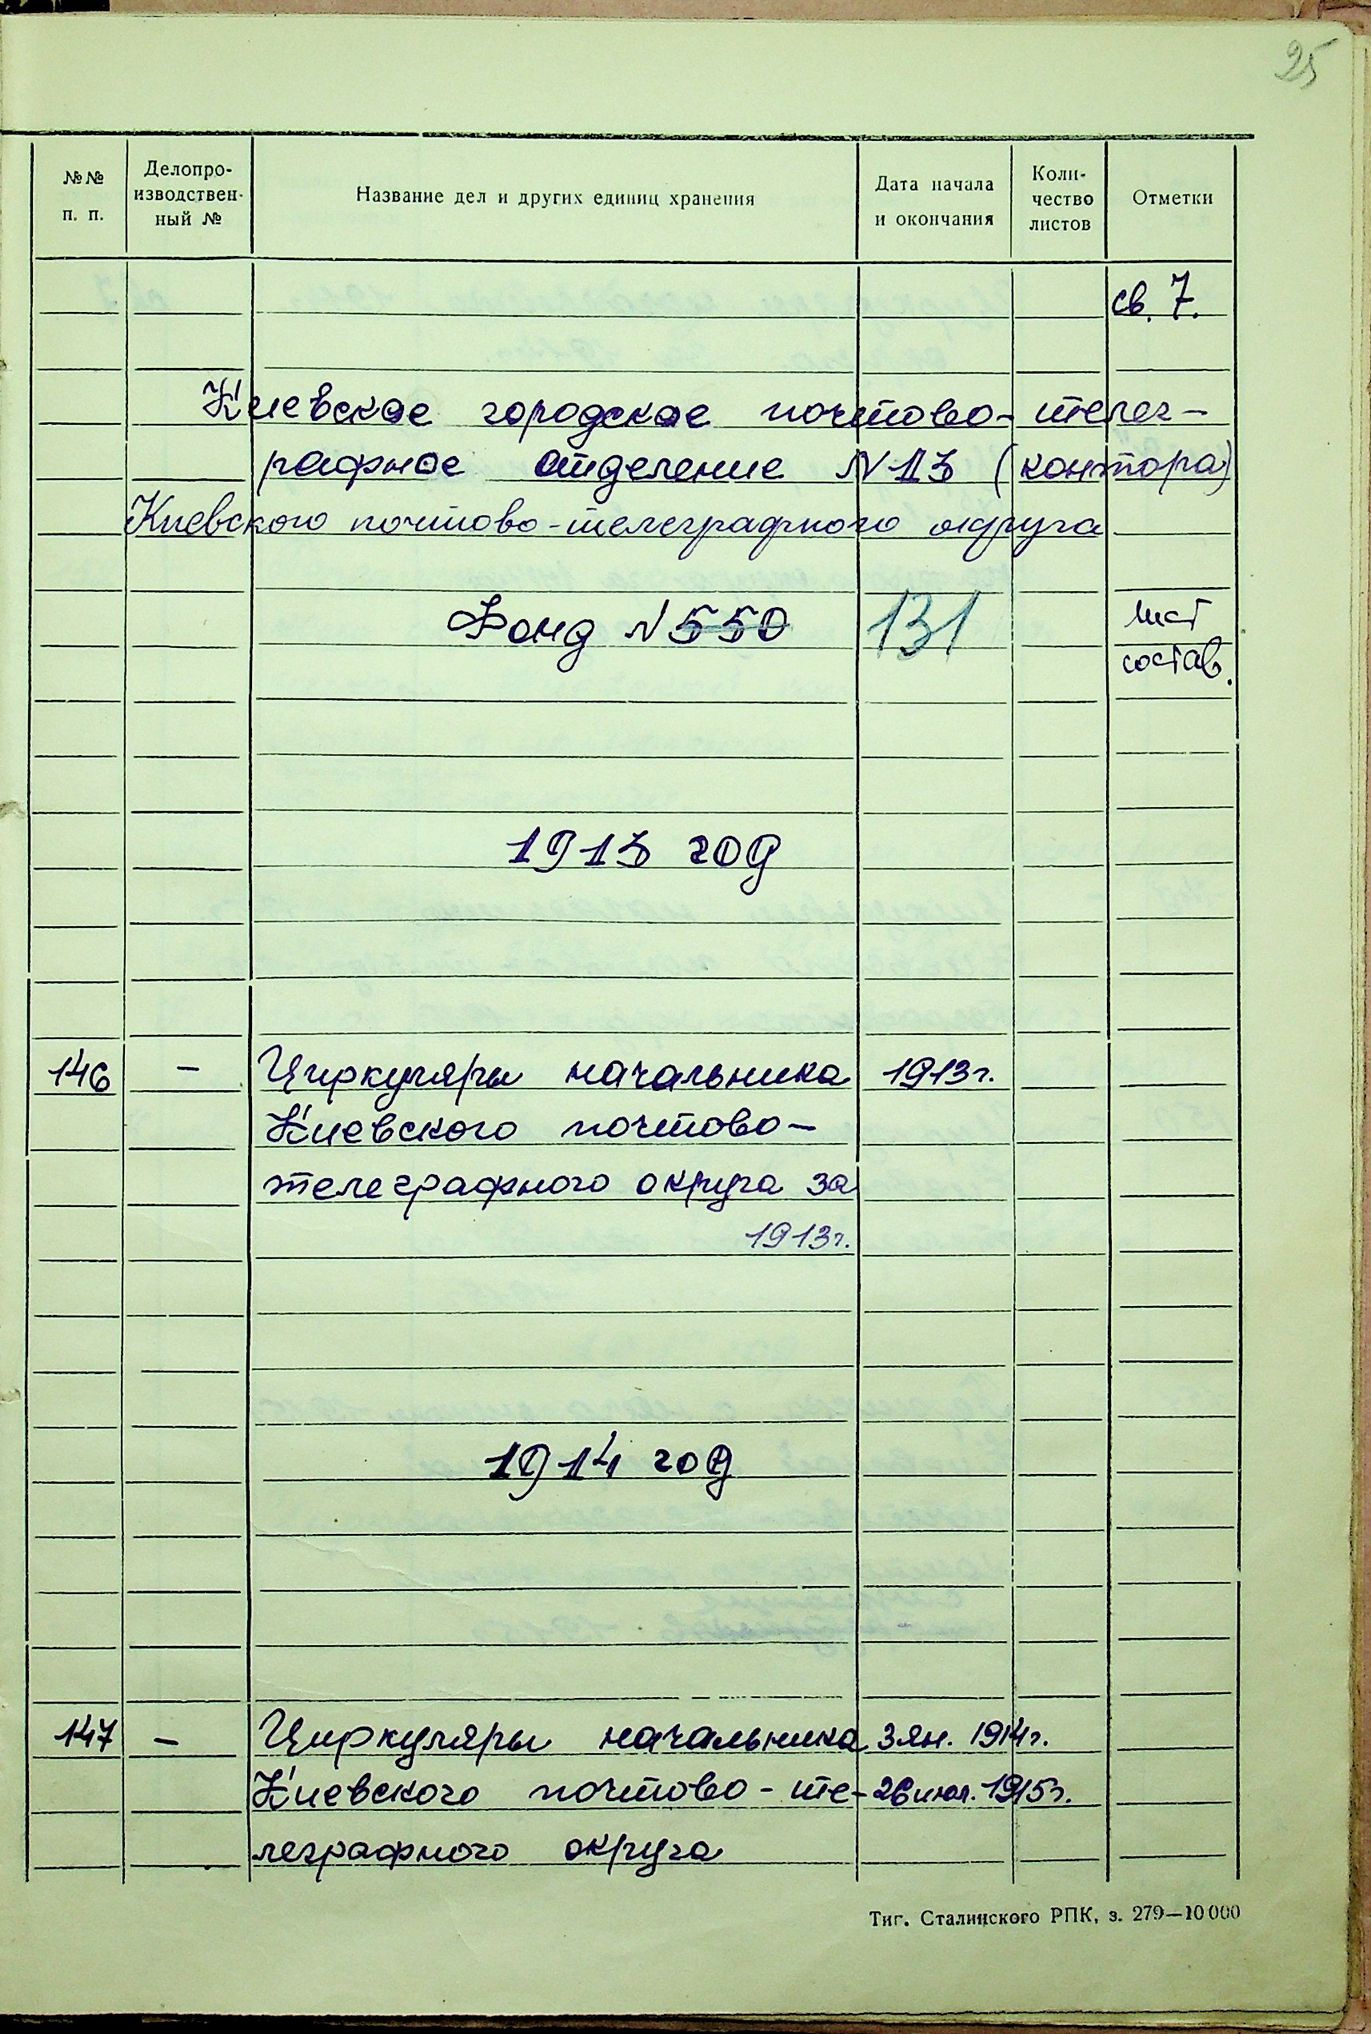 25
№№ п. п.
Делопро-
изводствен-
ный №
Название дел и других единиц хранения
Дата начала
и окончания
Коли-
чество
листов
Отметки
св. 7.
Киевское городское почтово-телег-
рафное отделение N 13 (контора)
Киевского почтово-телеграфного округа
Фонд N 550 131
лист
состав.
1913 год
146 – Циркуляры начальника 1913г.
Киевского почтово-
телеграфного округа за
1913г.
1914 год
147 – Циркуляры начальника 3 ян. 1914г.
Киевского почтово-те- 26 июл. 1915г.
леграфного округа
Тиг. Сталинского РПК, з. 279—10 000